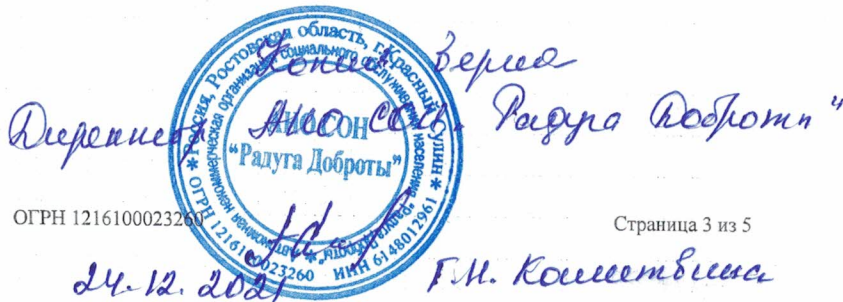 Копия верна
Директор АНО СОН „Радуга Доброты"
* Россия, Ростовская область, г. Красный Сулин *
ОГРН 1216100023260 ИНН 6148012961
Автономная некоммерческая организация социального обслуживания населения "Радуга Доброты" *
АНО СОН
"Радуга Доброты"
ОГРН 1216100023260
Страница 3 из 5
24.12.2021
Г.Н.